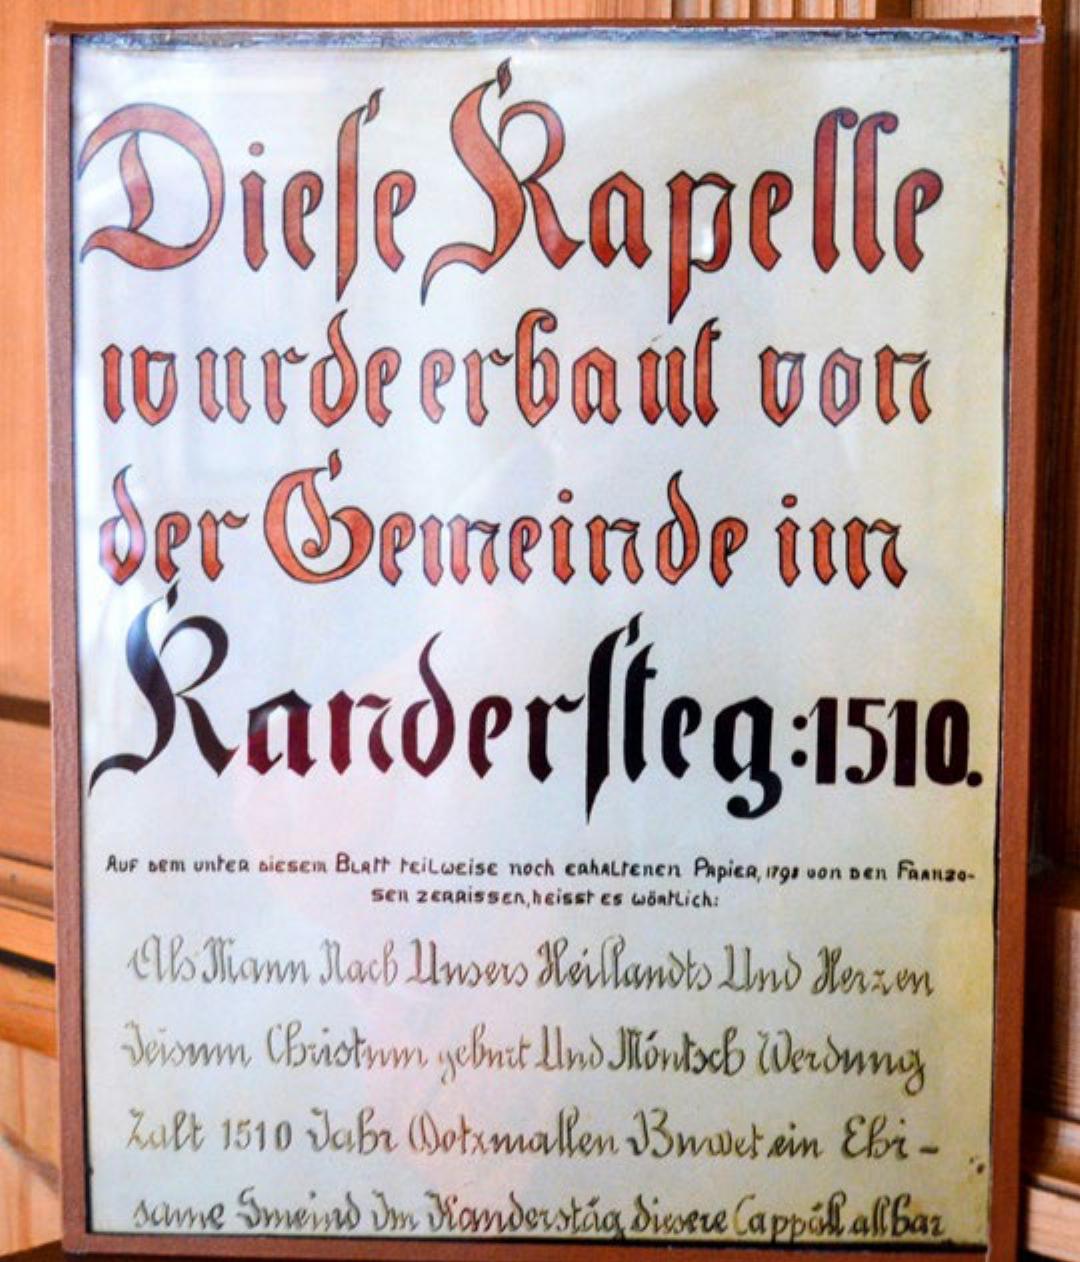 Diese Kapelle
wurde erbaut von
der Gemeinde im
Kandersteg:1510.
Auf dem unter diesem Blatt teilweise noch erhaltenen Papier, 1798 von den Franzo-
sen zerrissen, heisst es wörtlich:
Als Mann Nach Unsers Heillandts Und Herzen
Jeisum Christum geburt Und Möntsch Werdung
Zalt 1510 Jahr Dotzmallen Buwet ein Ehr-
same Gmeind Im Kanderstäg diesere Cappäll allhar